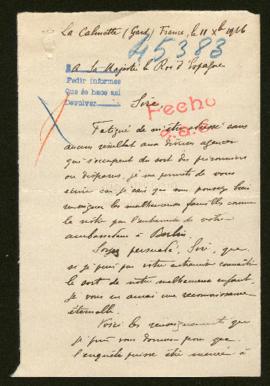 La Calmette (Gard) France, le 11 Xbre 1916
45383
A Sa Majesté le Roi d'Espagne
Pedir informes
Que se hace así
Devolver
Sire,
Fecho
Fatigué de m'être adressé sans
aucun résultat aux divers agences
qui s'occupent du sort des prisonniers
ou disparus, je me permets de vous
écrire car je sais que vous pouvez bien
renseigner les malheureuses familles comme
la nôtre par l'entremise de votre
ambassadeur à Berlin.
Soyez persuadé, Sire, que
si je puis par votre entremise connaître
le sort de notre malheureux enfant,
je vous en aurai une reconnaissance
éternelle.
Voici les renseignements que
je puis vous donner pour que
l'enquête puisse être menée à